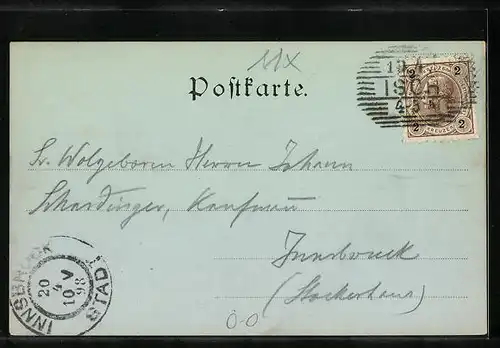 11x
Postkarte.
19.4
ISCHL
4-5 N
2 2
2 2
KREUZER
Sr. Wolgeboren Herrn Johann
Schardinger, Kaufmann
Innsbruck
(Stockerhaus)
INNSBRUCK
20
4 V
10
98
STADT
0-0